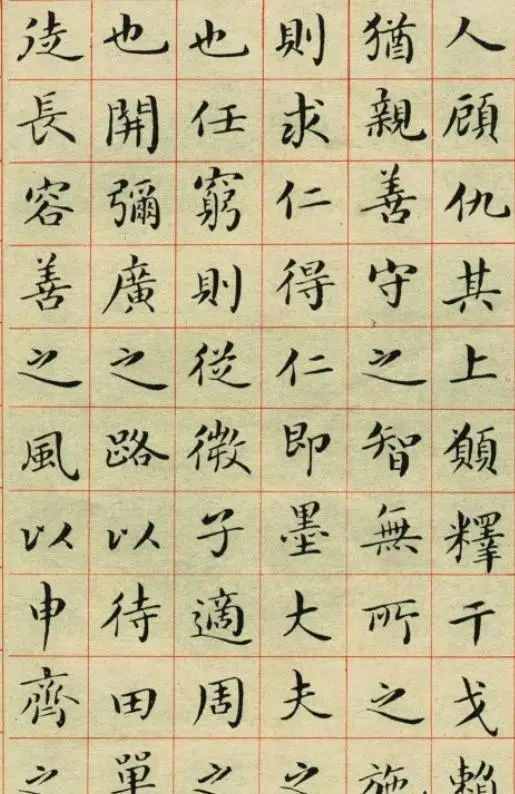 人顧仇其上願釋干戈賴
猶親善守之智無所之施
則求仁得仁即墨大夫之
也任窮則從微子適周之
也開彌廣之路以待田單
徒長容善之風以申齊之